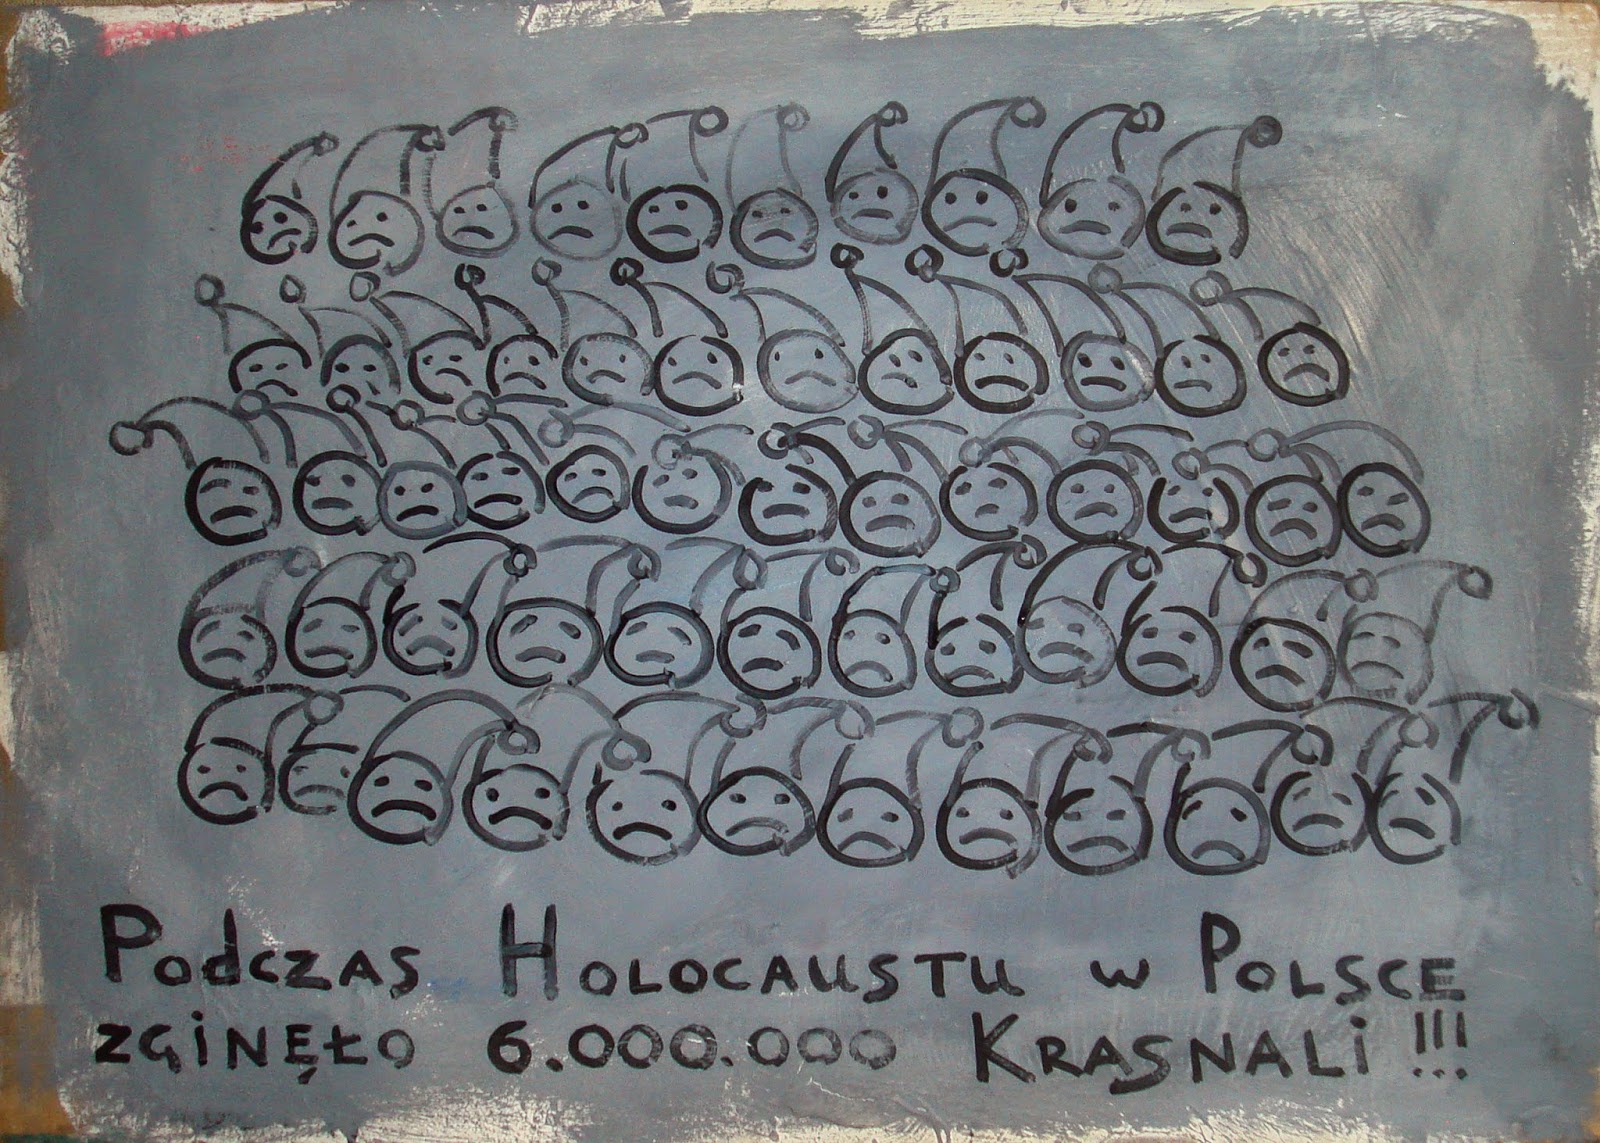 Podczas Holocaustu w Polsce
zginęło 6.000.000 Krasnali !!!